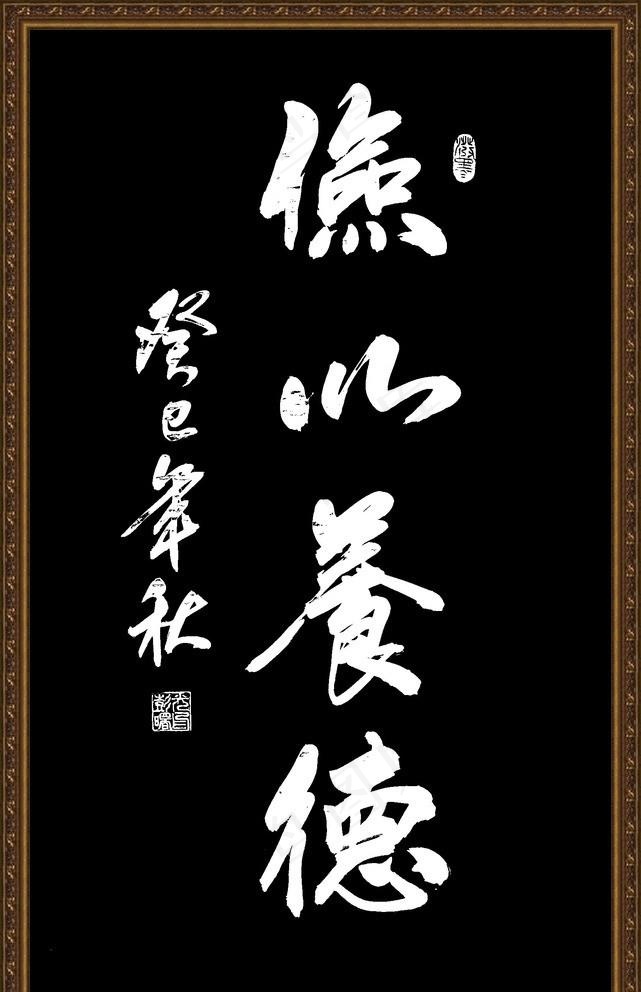 儉以養德
癸巳年秋